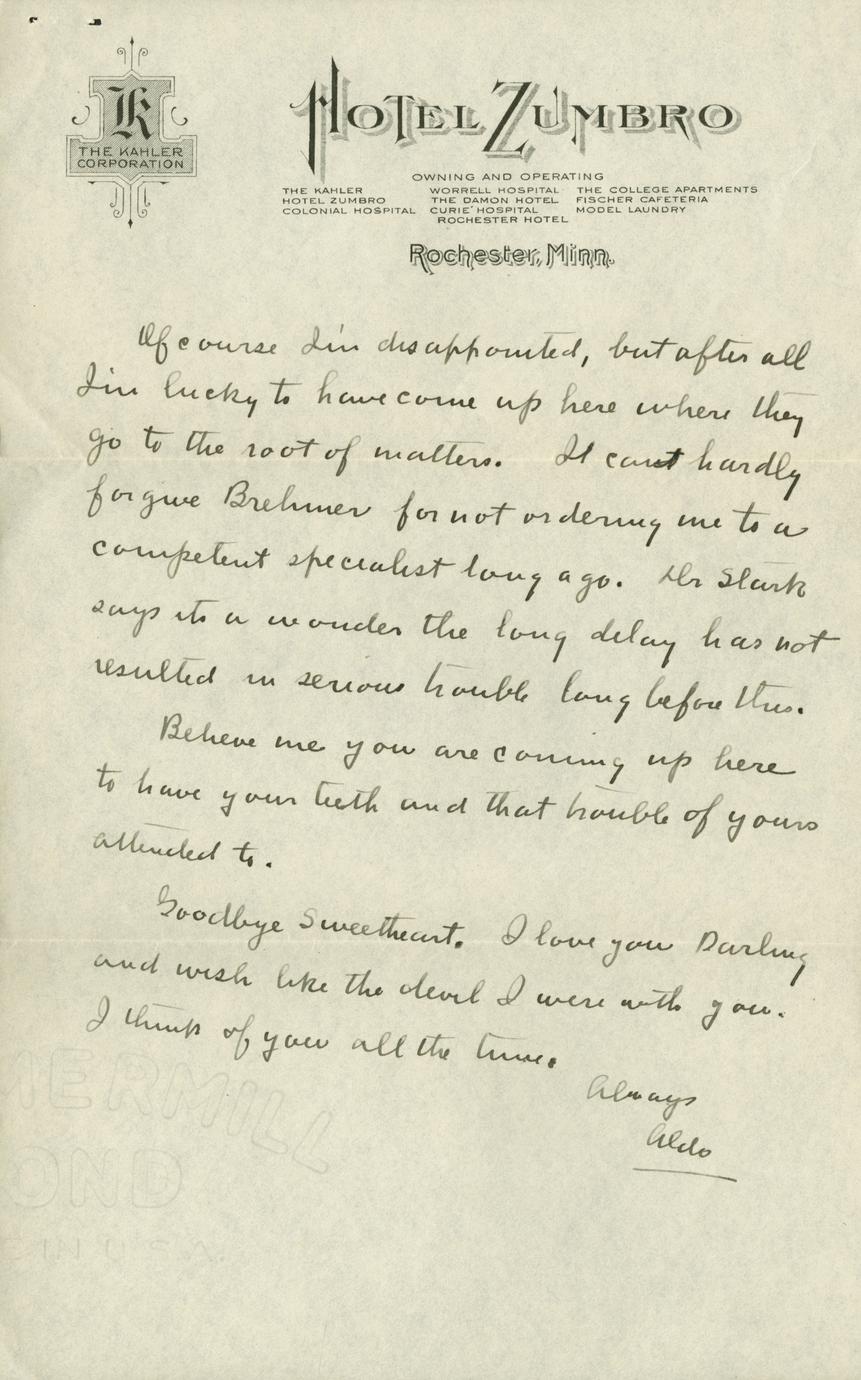 K
THE KAHLER
CORPORATION
HOTEL ZUMBRO
OWNING AND OPERATING
THE KAHLER WORRELL HOSPITAL THE COLLEGE APARTMENTS
HOTEL ZUMBRO THE DAMON HOTEL FISCHER CAFETERIA
COLONIAL HOSPITAL CURIE HOSPITAL MODEL LAUNDRY
ROCHESTER HOTEL
Rochester, Minn.
Of course I'm disappointed, but after all
I'm lucky to have come up here where they
go to the root of matters. I can't hardly
forgive Brehmer for not ordering me to a
competent specialist long ago. Dr Stark
says its a wonder the long delay has not
resulted in serious trouble long before this.
Believe me you are coming up here
to have your teeth and that trouble of yours
attended to.
Goodbye Sweetheart. I love you Darling
and wish like the devil I were with you.
I think of you all the time.
Always
Aldo
MERMILL
OND
U.S.A.